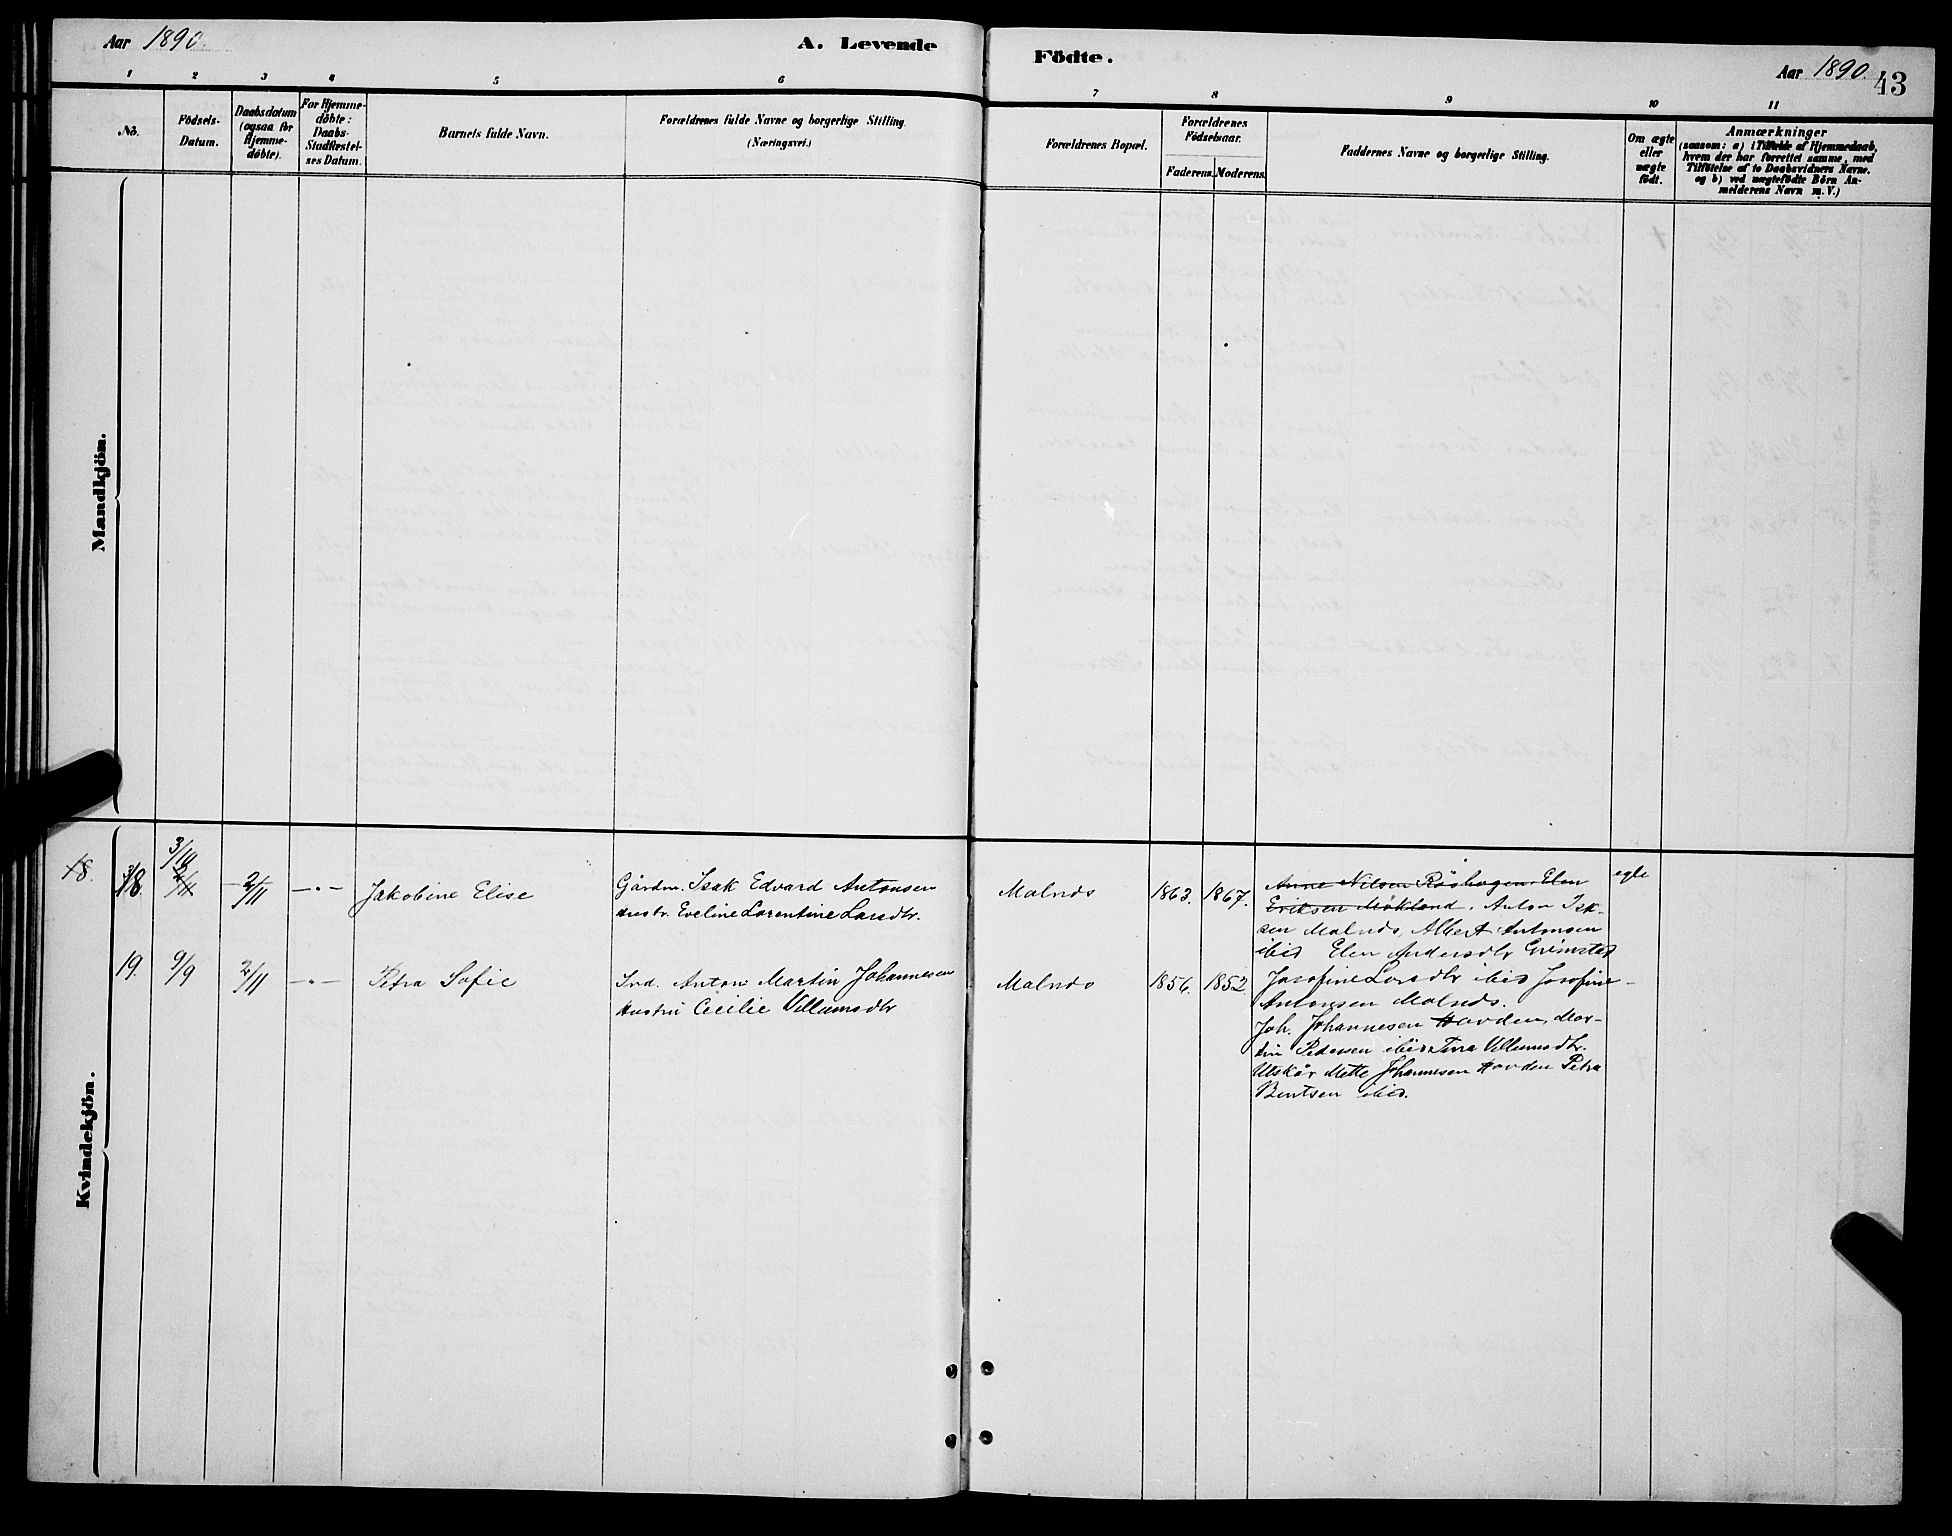 Aar 1890.
A. Levende
Födte.
Aar 1890.
43
1 2 3 4 5 6 7 8 9 10 11
No.
Födsels-
Datum.
Daabsdatum
(ogsaa for
Hjemme-
döbte).
For Hjemme-
döbte:
Daabs-
Stadfæstel-
ses Datum.
Barnets fulde Navn.
Forældrenes fulde Navne og borgerlige Stilling.
(Næringsvei.)
Forældrenes Bopæl.
Forældrenes
Födselsaar.
Faderens. Moderens.
Faddernes Navne og borgerlige Stilling.
Om ægte
eller
uægte
födt.
Anmærkninger
(saasom: a) i Tilfælde af Hjemmedaab,
hvem der har forrettet samme, med
Tilföielse af to Daabsvidners Navne.
og b) ved uægtefödte Börn An-
melderens Navn m. V.)
Mandkjön.
Kvindekjön.
18.
3/10
18. 2/11 2/11 —"— Jakobine Elise
Gårdm. Isak Edvard Antonsen
Hustr. Eveline Lorentine Larsdtr.
Malnes 1863. 1867.
Anne Nilsen Röshagen Elen
Eriksen Mökland. Anton Isak-
sen Malnes, Albert Antonsen
ibid Elen Andersdtr Grimstad
Josefine Larsdtr ibid Josefine
Antonsen Malnes.
egte
19. 9/9 2/11 —"— Petra Sofie
Ind. Anton Martin Johannesen
Hustru Cecilie Villumsdtr
Malnes 1856. 1852.
Joh. Johannesen Hovden, Mar-
tin Pedersen ibid Tina Villumsdtr.
Utskår Mette Johannesen Hovden Petra
Bentsen ibid.